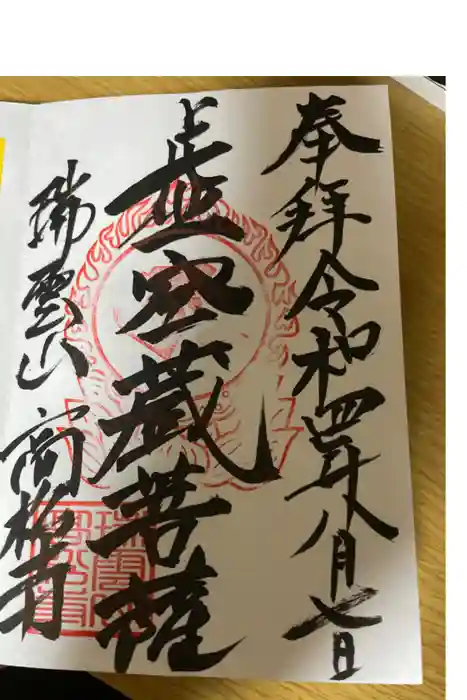 奉拝 令和四年八月七日
虚空蔵菩薩
瑞雲山